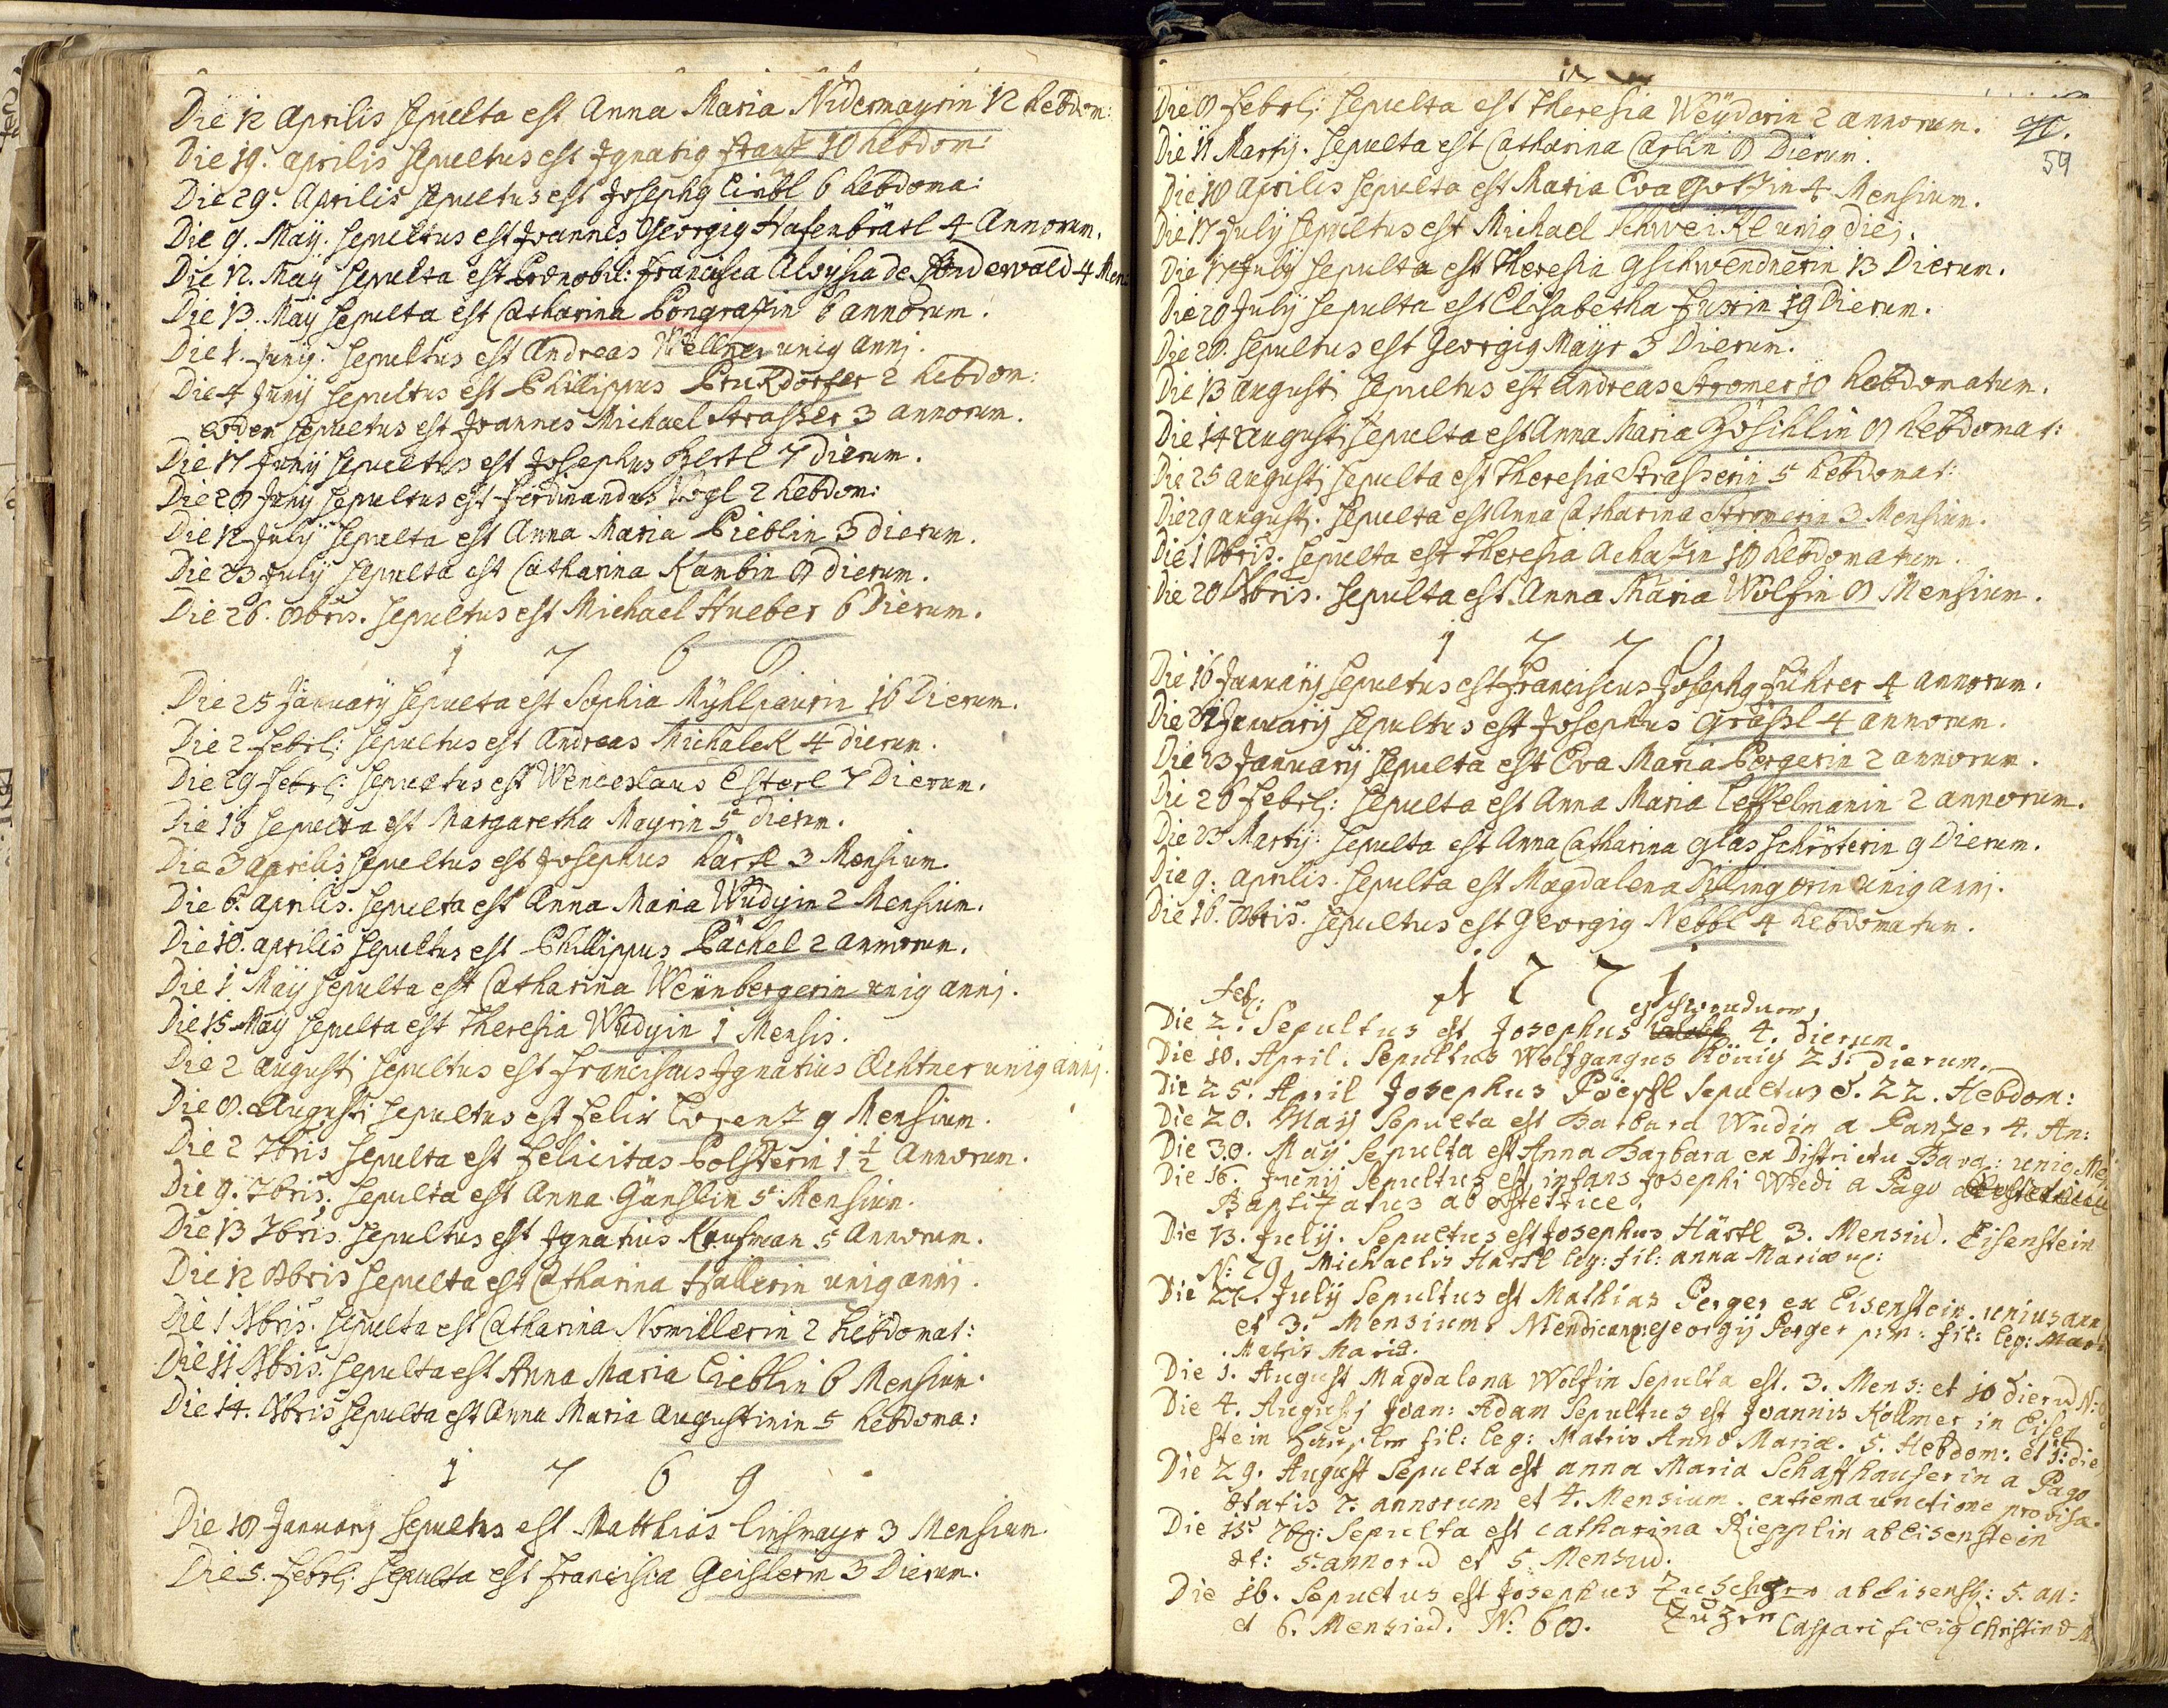 Die 12 Aprilis sepulta est Anna Maria Nidermayrin 12 hebdom:
Die 19. aprilis sepultus est Ignatig Frantz 10 hebdom:
Die 29. Aprilis sepultus est Josephg Liebl 6 hebdoma:
Die 9. Maÿ. sepultus est Joannes Georgig Hafenbrätl 4 Annorum.
Die 12. Maÿ sepulta est Prænobil: Francisca Aloysia de 4 Men:
Die 13. Maÿ sepulta est Catharina Pongratzin 6 annorum.
Die 1. Junÿ. sepultus est Andreas Wellner unig annj.
Die 4 Junÿ sepultus est Phillippus Prukdorfer 2 hebdom:
eodem sepultus est Joannes Michael Strasser 3 annorum.
Die 17 Junÿ sepultus est Josephus Hertl 7 dierum.
Die 28 Junÿ sepultus est Ferdinandus Vogl 2 hebdom:
Die 12 Julÿ sepulta est Anna Maria Lieblin 3 dierum.
Die 23 Julÿ sepulta est Catharina Kambin 8 dierum.
Die 26. 8bris. sepultus est Michael Hueber 6 Dierum.
1 7 6 8
Die 25 Januarÿ sepulta est Sophia Mÿhlpaurin 16 Dierum.
Die 2 Febrl: sepultus est Andreas Michalek 4 dierum.
Die 29 Febrl: sepultus est Wenceslaus Esterl 7 Dierum.
Die 16 sepulta est Margaretha Mayrin 5 dierum.
Die 3 aprilis sepultus est Josephus Härtl 3 Mensium.
Die 6. aprilis. sepulta est Anna Maria Wudyin 2 Mensium.
Die 10. aprilis sepultus est Phillippus Pächel 2 annorum.
Die 1 Maÿ sepulta est Catharina Weinbergerin unig annj.
Die 15 Maÿ sepulta est Theresia Wudyin 1 Mensis.
Die 2 augustj sepultus est Franciscus Ignatius Aechtner unig annj.
Die 8. Augustj sepultus est Felix Lorentz 9 Mensium.
Die 2 7bris sepulta est Felicitas Polsterin 1 1/2 Annorum.
Die 9. 7bris. sepulta est Anna Gänslin 5 Mensium.
Die 13 7bris. sepultus est Ignatius Kaufman 5 Annorum.
Die 12 8bris sepulta est Catharina Hallerin unig annj.
Die 1 Xbris. sepulta est Catharina Nomillerin 2 hebdomat:
Die 11 Xbris. sepulta est Anna Maria Lieblin 6 Mensium.
Die 14. Xbris sepulta est Anna Maria Augustinin 5 hebdoma:
1 7 6 9
Die 18 Januarÿ sepultus est Matthias Linsmayr 3 Mensium.
Die 5. Febrl: sepulta est Francisca Geislerin 3 Dierum.
59
Die 8 Febrl: sepulta est Theresia Weÿdorin 2 annorum.
Die 11 Martÿ. sepulta est Catharina Carlin 8 Dierum.
Die 18 aprilis sepulta est Maria Eva Gotzin 4 Mensium.
Die 17 Julÿ sepultus est Michael Schweikl unig diej.
Die 17 Julÿ sepulta est Theresia Gschwendnerin 13 Dierum.
Die 20 Julÿ sepulta est Elisabetha Fuxin 19 Dierum.
Die 28. sepultus est Georgig Mayr 3 Dierum.
Die 13 augustj sepultus est Andreas Stromer 10 hebdomatum.
Die 14 augustj sepulta est Anna Maria 8 hebdomat:
Die 25 augustj sepulta est Theresia Strasserin 5 hebdomat:
Die 29 augustj. sepulta est Anna Catharina Stromerin 3 Mensium.
Die 1 8bris. sepulta est Theresia Achazin 18 hebdomatum.
Die 20 Xbris. sepulta est Anna Maria Wolfin 8 Mensium.
1 7 7 0
Die 16 Januarÿ sepultus est Franciscus Josephg Führer 4 annorum.
Die 21 Januarÿ sepultus est Josephus Grässl 4 annorum.
Die 23 Januarÿ sepulta est Eva Maria Pergerin 2 annorum.
Die 26 Febrl: sepulta est Anna Maria Leffelmanin 2 annorum.
Die 23 Martÿ: sepulta est Anna Catharina Glasschröterin 9 Dierum.
Die 9. aprilis. sepulta est Magdalena Dillingerin unig annj.
Die 16. 8bris. sepultus est Georgig Nebbl 4 hebdomatum.
1 7 7 1
Feb: gschwendner
Die 2. Sepultus est Josephus 4. dierum.
Die 10. April. Sepultus Wolfgangus König 21. dierum.
Die 25. April Josephus Pöeschl Sepultus e. 22. Hebdom:
Die 20. Maÿ Sepulta est Barbara Wudin a Panzer 4. An:
Die 30. Maÿ Sepulta est Anna Barbara ex Districtu Bava: unig Me
Die 16. Junÿ Sepultus est infans Josephi Wudi a Pago
Baptizatus ab obstetrice.
Die 13. Julÿ. Sepultus est Josephus Härtl 3. Mensiu. Eisenstein
N: 29 Michaelis Härtl leg: fil: anna Maria ux:
Die 22. Julÿ Sepultus est Mathias Perger ex Eisenstein. unius ann
et 3. Mensium. Georgÿ Perger fil: leg:
Matris Maria.
Die 1. August Magdalena Wolfin Sepulta est. 3. Mens: et 10 dieru N:
Die 4. Augustj Joan: Adam Sepultus est Joannis Köllmer in Eisen
stein fil: leg: Matris Annæ Mariæ. 5. Hebdom: et 1: die
Die 29. August Sepulta est anna Maria Schaffhauserin a Pago
ætatis 7. annorum et 4. Mensium. extrema unctione provisa.
Die 15. 7bg: Sepulta est catharina Riepplin ab Eisenstein
æt: 5. annoru et 5. Mensiu.
Die 16. Sepultus est Josephus ab Eisenst: 5. an:
et 6. Mensiu. N: 68. Caspari filig Christinæ M